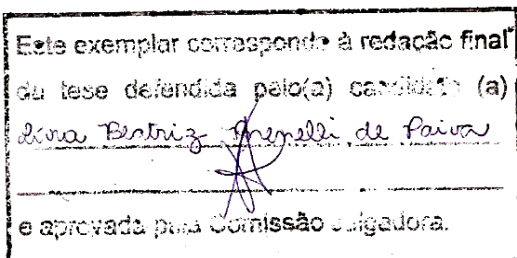 Este exemplar corresponde à redação final
da tese defendida pelo(a) candidato (a)
Lívia Beatriz de Paiva
e aprovada pela Comissão Julgadora.